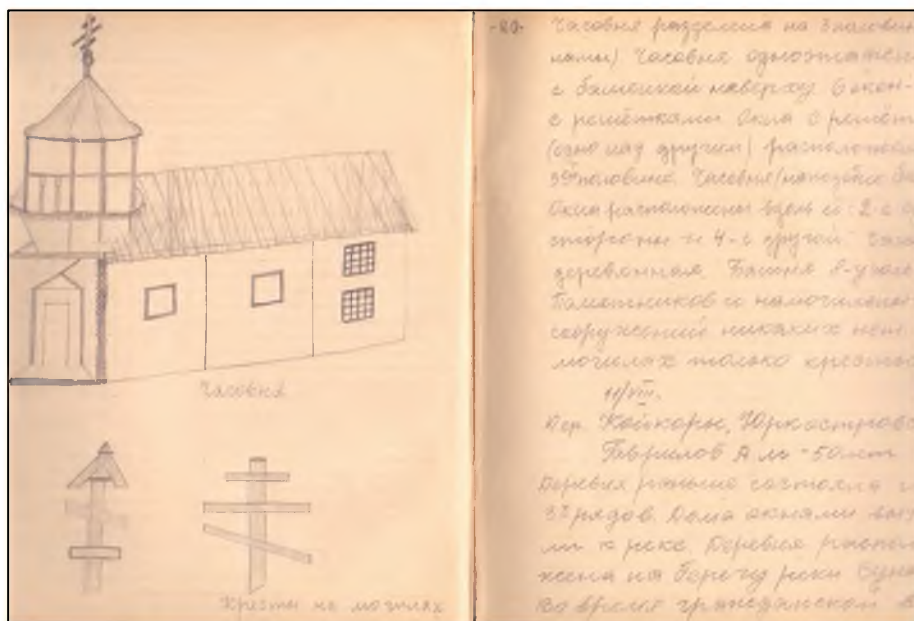 Часовня
Кресты на могилах
-20-
Часовня разделена на 3 половин
Часовня одноэтажн
с башенкой наверху 6 окон-
с решётками Окна с решёт
(одно над другим) расположен
половине. Часовня
Окна расположены вдоль 2-с
стороны и 4-с другой
деревянная. Башня 8-уголь
Памятников и намогильны
сооружений никаких нет
могилах только кресты
11/VIII.
Дер. Койкоры,
Гаврилов А 50 лет
Деревня раньше состояла и
3х рядов. Дома окнями
ли к реке. Деревня распол
жена на берегу реки Суна
Во время гражданской в